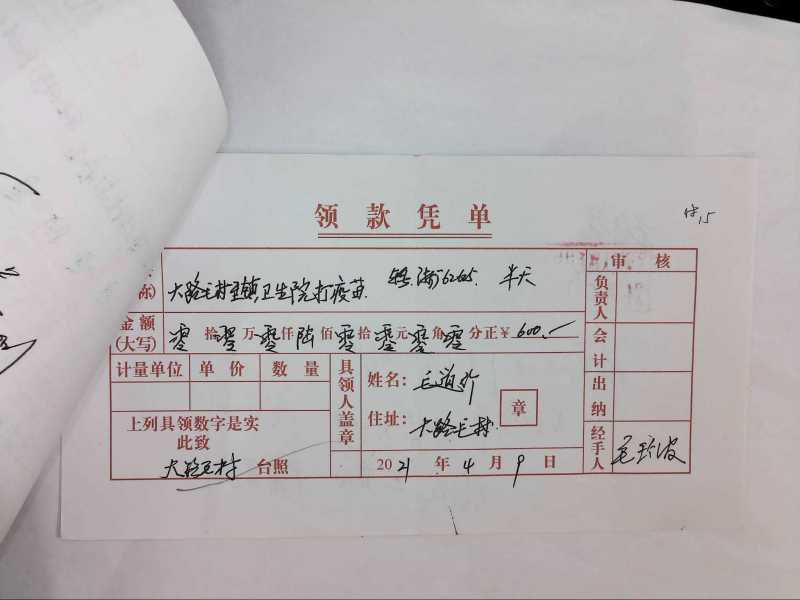 领款凭单
15
审核
称)
大路毛村至镇卫生院打疫苗 半天
负责人
金额
(大写)
零拾零万零仟陆佰零拾零元零角零分正¥600.—
会计
计量单位 单价 数量
具领人盖章
姓名:毛道
章
出纳
上列具领数字是实
此致
住址:大路毛村
大路毛村 台照
2021年4月9日
经手人
毛 波